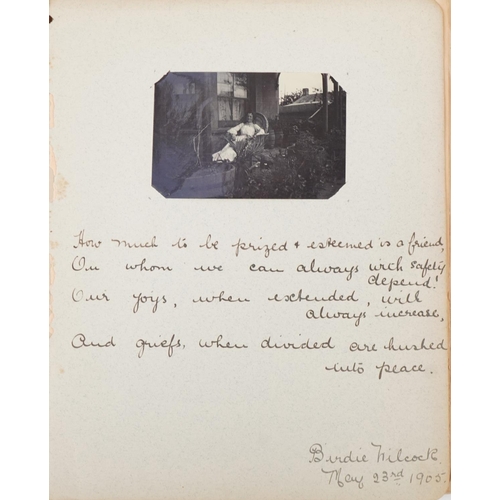 How much to be prized & esteemed is a friend,
On whom we can always with safety
depend!
Our joys, when extended, will
always increase,
And griefs, when divided are hushed
into peace.
Birdie Wilcock.
May 23rd 1905.